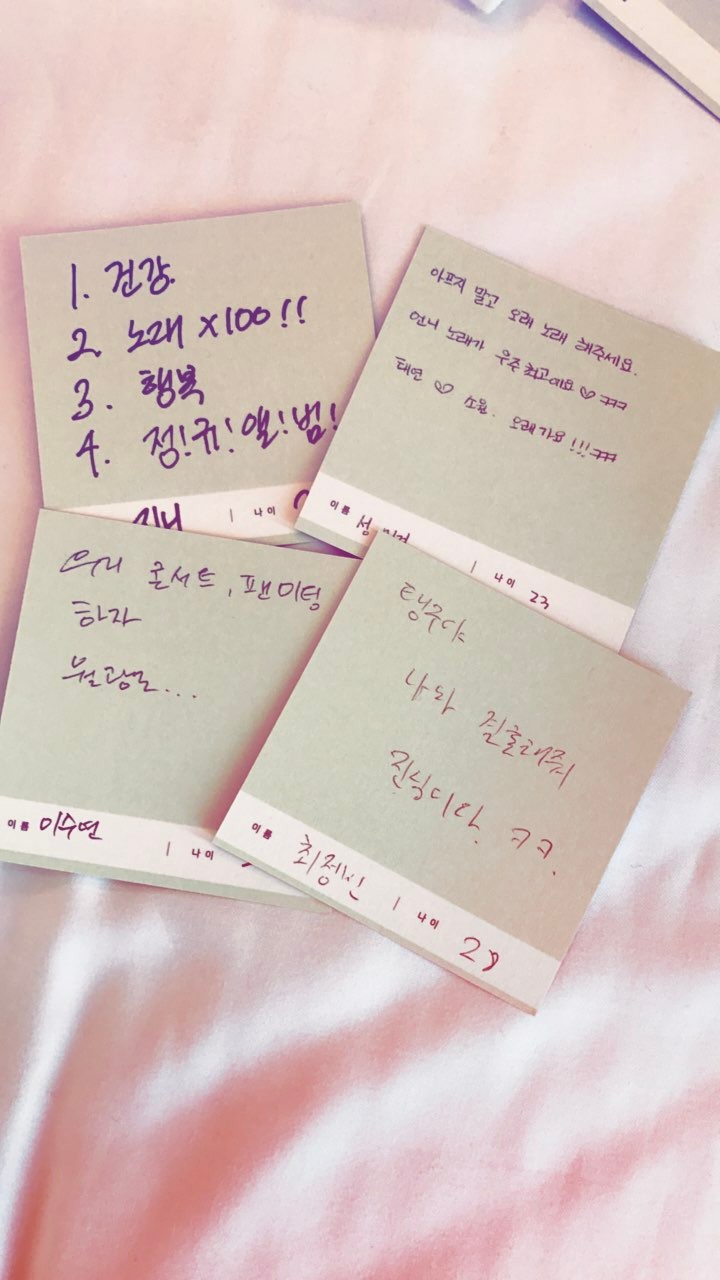 1. 건강
2. 노래 x100!!
3. 행복
4. 정!규!앨!범!
나이
아프지 말고 오래 노래 해주세요.
언니 노래가 우주최고예요 ♡ ㅋㅋㅋ
태연 ♡ 소원. 오래가요!!! ㅋㅋㅋ
이름 성 | 나이 23
우리 콘서트, 팬미팅
하자
이름 이수연 | 나이
탱구야
나와 결혼해줘
진심이다. ㅋㅋ.
이름 최정신 | 나이 28